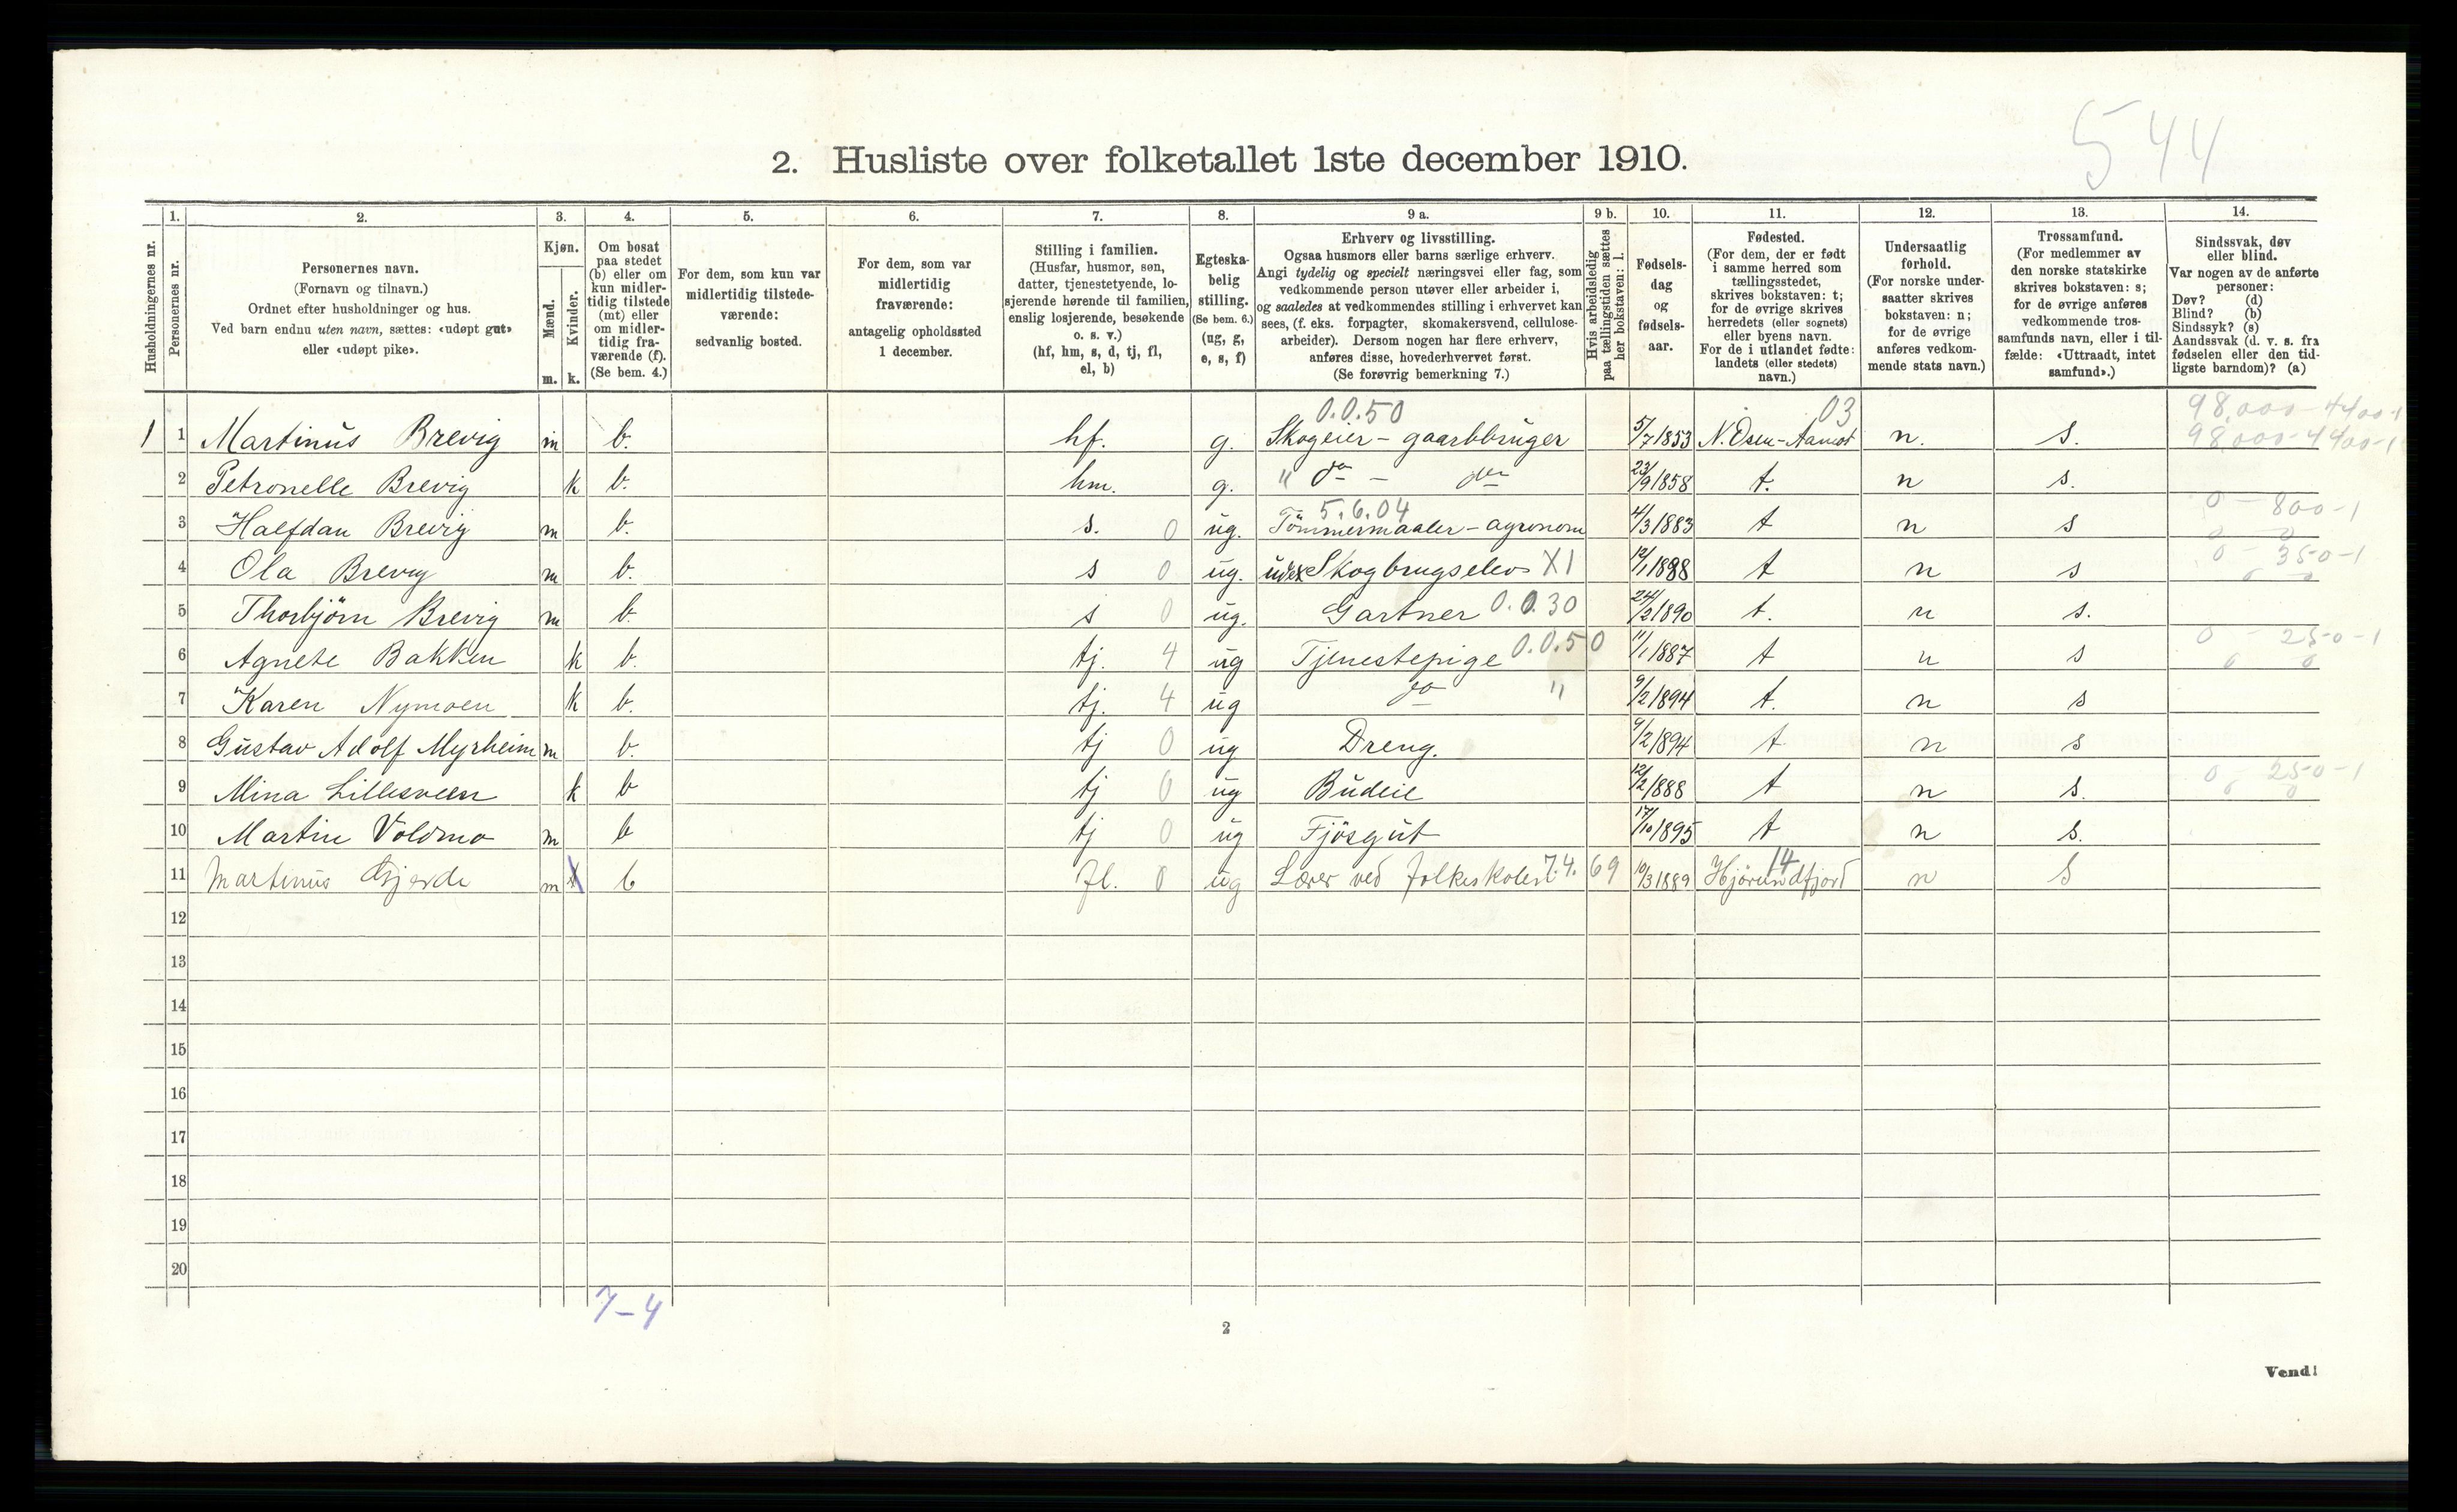 544
2. Husliste over folketallet 1ste december 1910.
Husholdningernes nr.
1.
Personernes nr.
2.
Personernes navn.
(Fornavn og tilnavn.)
Ordnet efter husholdninger og hus.
Ved barn endnu uten navn, sættes: «udøpt gut»
eller «udøpt pike».
3.
Kjøn.
Mænd.
Kvinder.
m. k.
4.
Om bosat
paa stedet
(b) eller om
kun midler-
tidig tilstede
(mt) eller
om midler-
tidig fra-
værende (f).
(Se bem. 4.)
5.
For dem, som kun var
midlertidig tilstede-
værende:
sedvanlig bosted.
6.
For dem, som var
midlertidig
fraværende:
antagelig opholdssted
1 december.
7.
Stilling i familien.
(Husfar, husmor, søn,
datter, tjenestetyende, lo-
sjerende hørende til familien,
enslig losjerende, besøkende
o. s. v.)
(hf, hm, s, d, tj, fl,
el, b)
8.
Egteska-
belig
stilling.
(Se bem. 6.)
(ug, g,
e, s, f)
9 a.
Erhverv og livsstilling.
Ogsaa husmors eller barns særlige erhverv.
Angi tydelig og specielt næringsvei eller fag, som
vedkommende person utøver eller arbeider i,
og saaledes at vedkommendes stilling i erhvervet kan
sees, (f. eks. forpagter, skomakersvend, cellulose-
arbeider). Dersom nogen har flere erhverv,
anføres disse, hovederhvervet først.
(Se forøvrig bemerkning 7.)
9 b.
Hvis arbeidsledig
paa tællingstiden sættes
her bokstaven: l.
10.
Fødsels-
dag
og
fødsels-
aar.
11.
Fødested.
(For dem, der er født
i samme herred som
tællingsstedet,
skrives bokstaven: t;
for de øvrige skrives
herredets (eller sognets)
eller byens navn.
For de i utlandet fødte:
landets (eller stedets)
navn.)
12.
Undersaatlig
forhold.
(For norske under-
saatter skrives
bokstaven: n;
for de øvrige
anføres vedkom-
mende stats navn.)
13.
Trossamfund.
(For medlemmer av
den norske statskirke
skrives bokstaven: s;
for de øvrige anføres
vedkommende tros-
samfunds navn, eller i til-
fælde: «Uttraadt, intet
samfund».)
14.
Sindssvak, døv
eller blind.
Var nogen av de anførte
personer:
Døv? (d)
Blind? (b)
Sindssyk? (s)
Aandssvak (d. v. s. fra
fødselen eller den tid-
ligste barndom)? (a)
0.0.50 03 98.000-4400-1
1 1 Martinus Brevig m b. hf. g. Skogeier - gaardbruger 5/7 1853 N. Osen-Aamot n. s. 98.000-4400-1
2 Petronelle Brevig k b. hm. g. " do - do 23/9 1858 t. n s.
5.6.04 0 - 800-1
3 Halfdan Brevig m b. s. 0 ug. Tömmermaaler - agronom 4/3 1883 t n s 0 0
4 Ola Brevig m b. s 0 ug. Skogbrugselev X1 12/1 1888 t n s 0 - 350-1
5 Thorbjörn Brevig m b. s 0 ug. Gartner 0.0.30 24/2 1890 t. n s.
6 Agnete Bakken k b. tj. 4 ug Tjenestepige 0.0.50 11/1 1887 t n s 0 - 250-1
7 Karen Nymoen k b. tj. 4 ug do " 9/2 1894 t. n s
8 Gustav Adolf Myrheim m b. tj 0 ug Dreng. 9/2 1894 t n s
9 Mina Lillesveen k b tj 0 ug Budeie 12/2 1888 t n s. 0 250-1
10 Martin Voldmo m b tj 0 ug Fjösgut 17/10 1895 t n s.
11 Martinus Gjerde m b fl. 0 ug Lærer ved folkeskolen 7.4.69 10/3 1889 Hjörundfjord 14 n S
12
13
14
15
16
17
18
19
20
7-4
2
Vend!